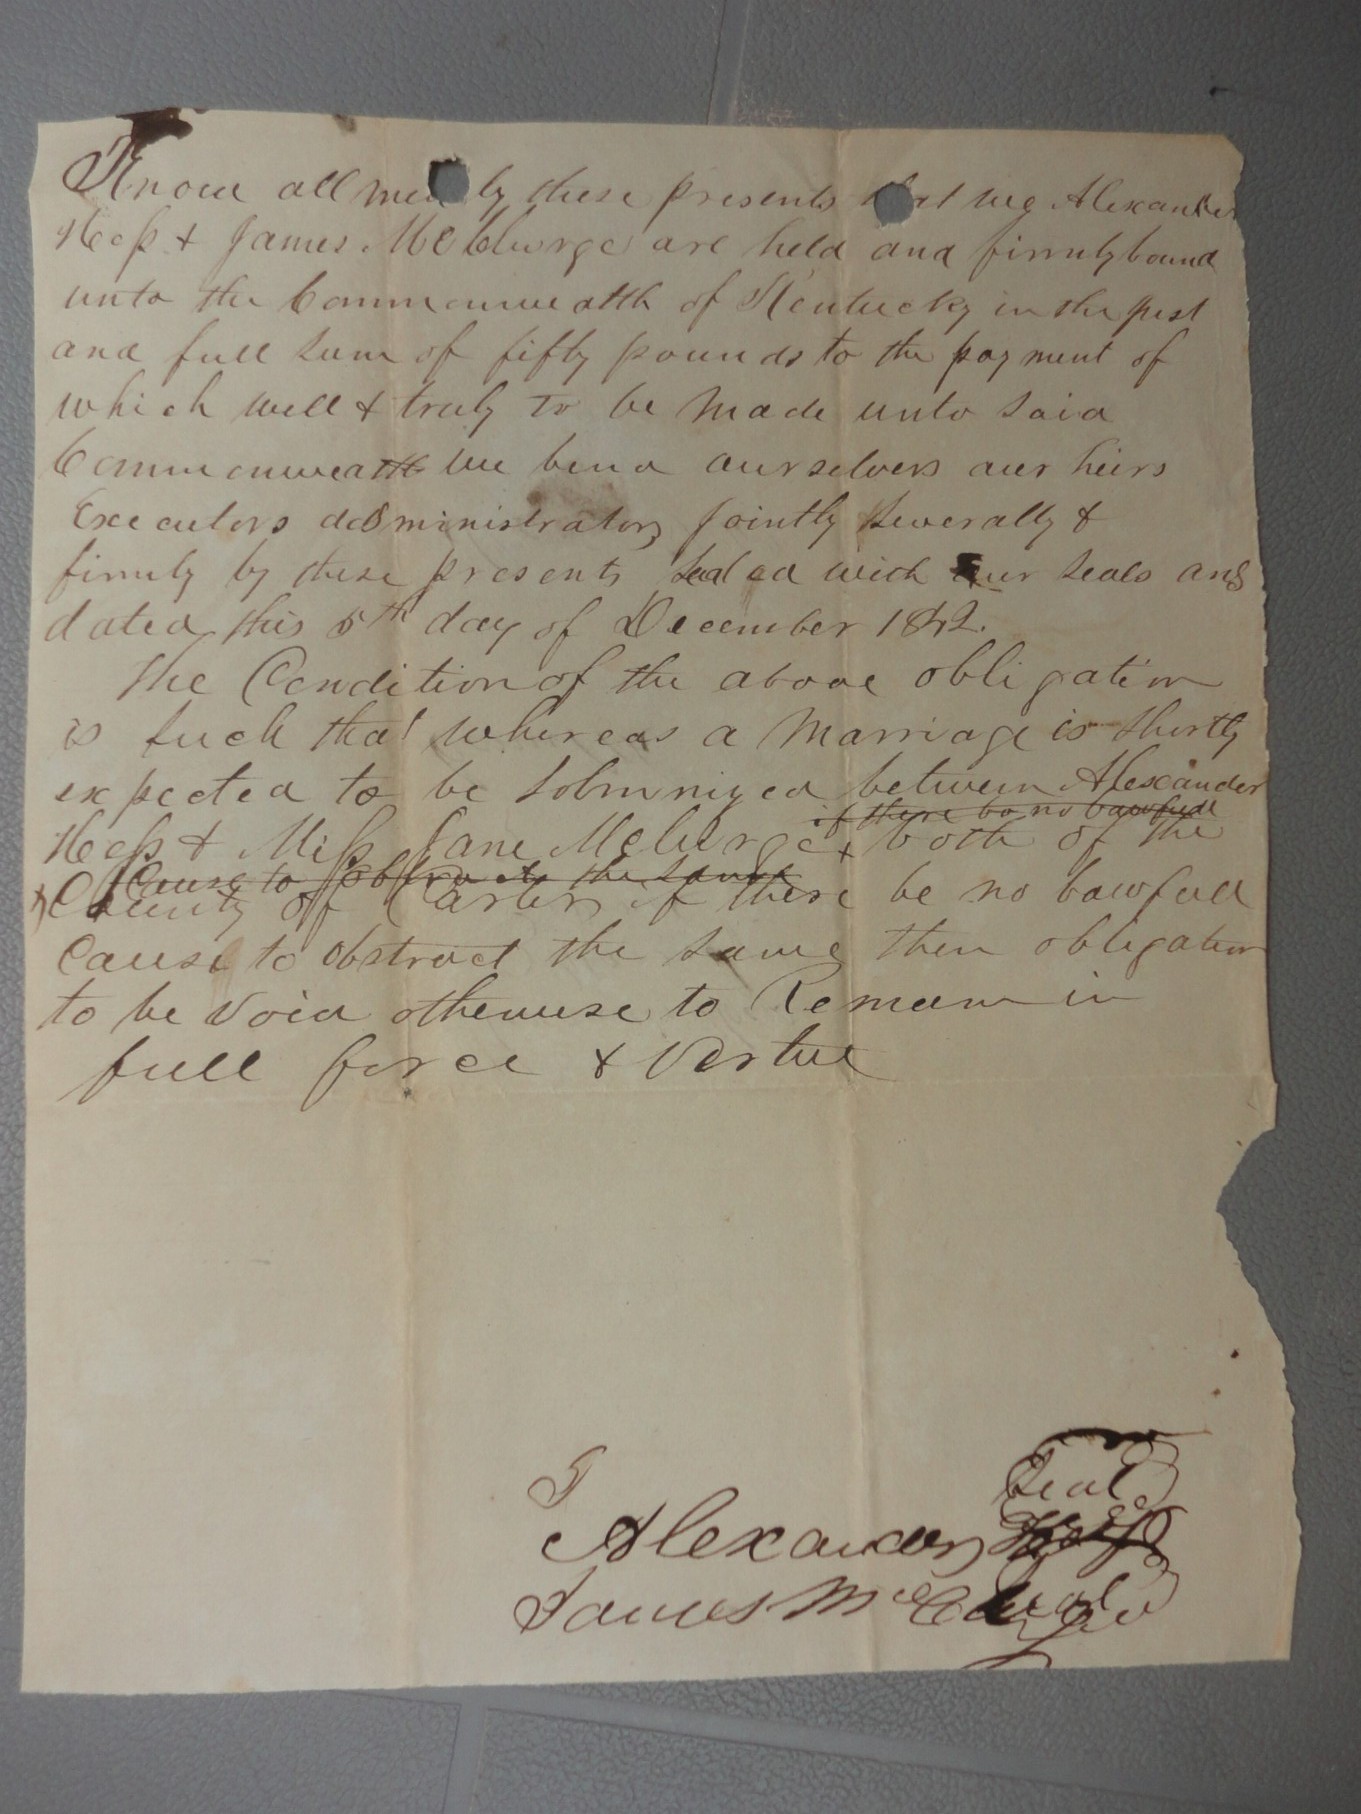 Know all men by these presents that we Alexander
Hess & James McClurge are held and firmly bound
unto the Commonwealth of Kentucky in the just
and full sum of fifty pounds to the payment of
which well & truly to be made unto said
Commonwealth we bind ourselvers our heirs
Executors administrators jointly severally &
firmly by these presents sealed with our seals and
dated this 5th day of December 1842.
The Condition of the above obligation
is such that whereas a Marriage is shortly
expected to be solmnized between Alexander
if there be no lawfull
Hess & Miss Jane McClurge & both of the
Cause to obstruct the same
County of Carter if there be no lawfull
Cause to obstruct the same then obligation
to be void otherwise to Remain in
full force & Vertue
Seal
Alexander Hess
James Mc
Seal